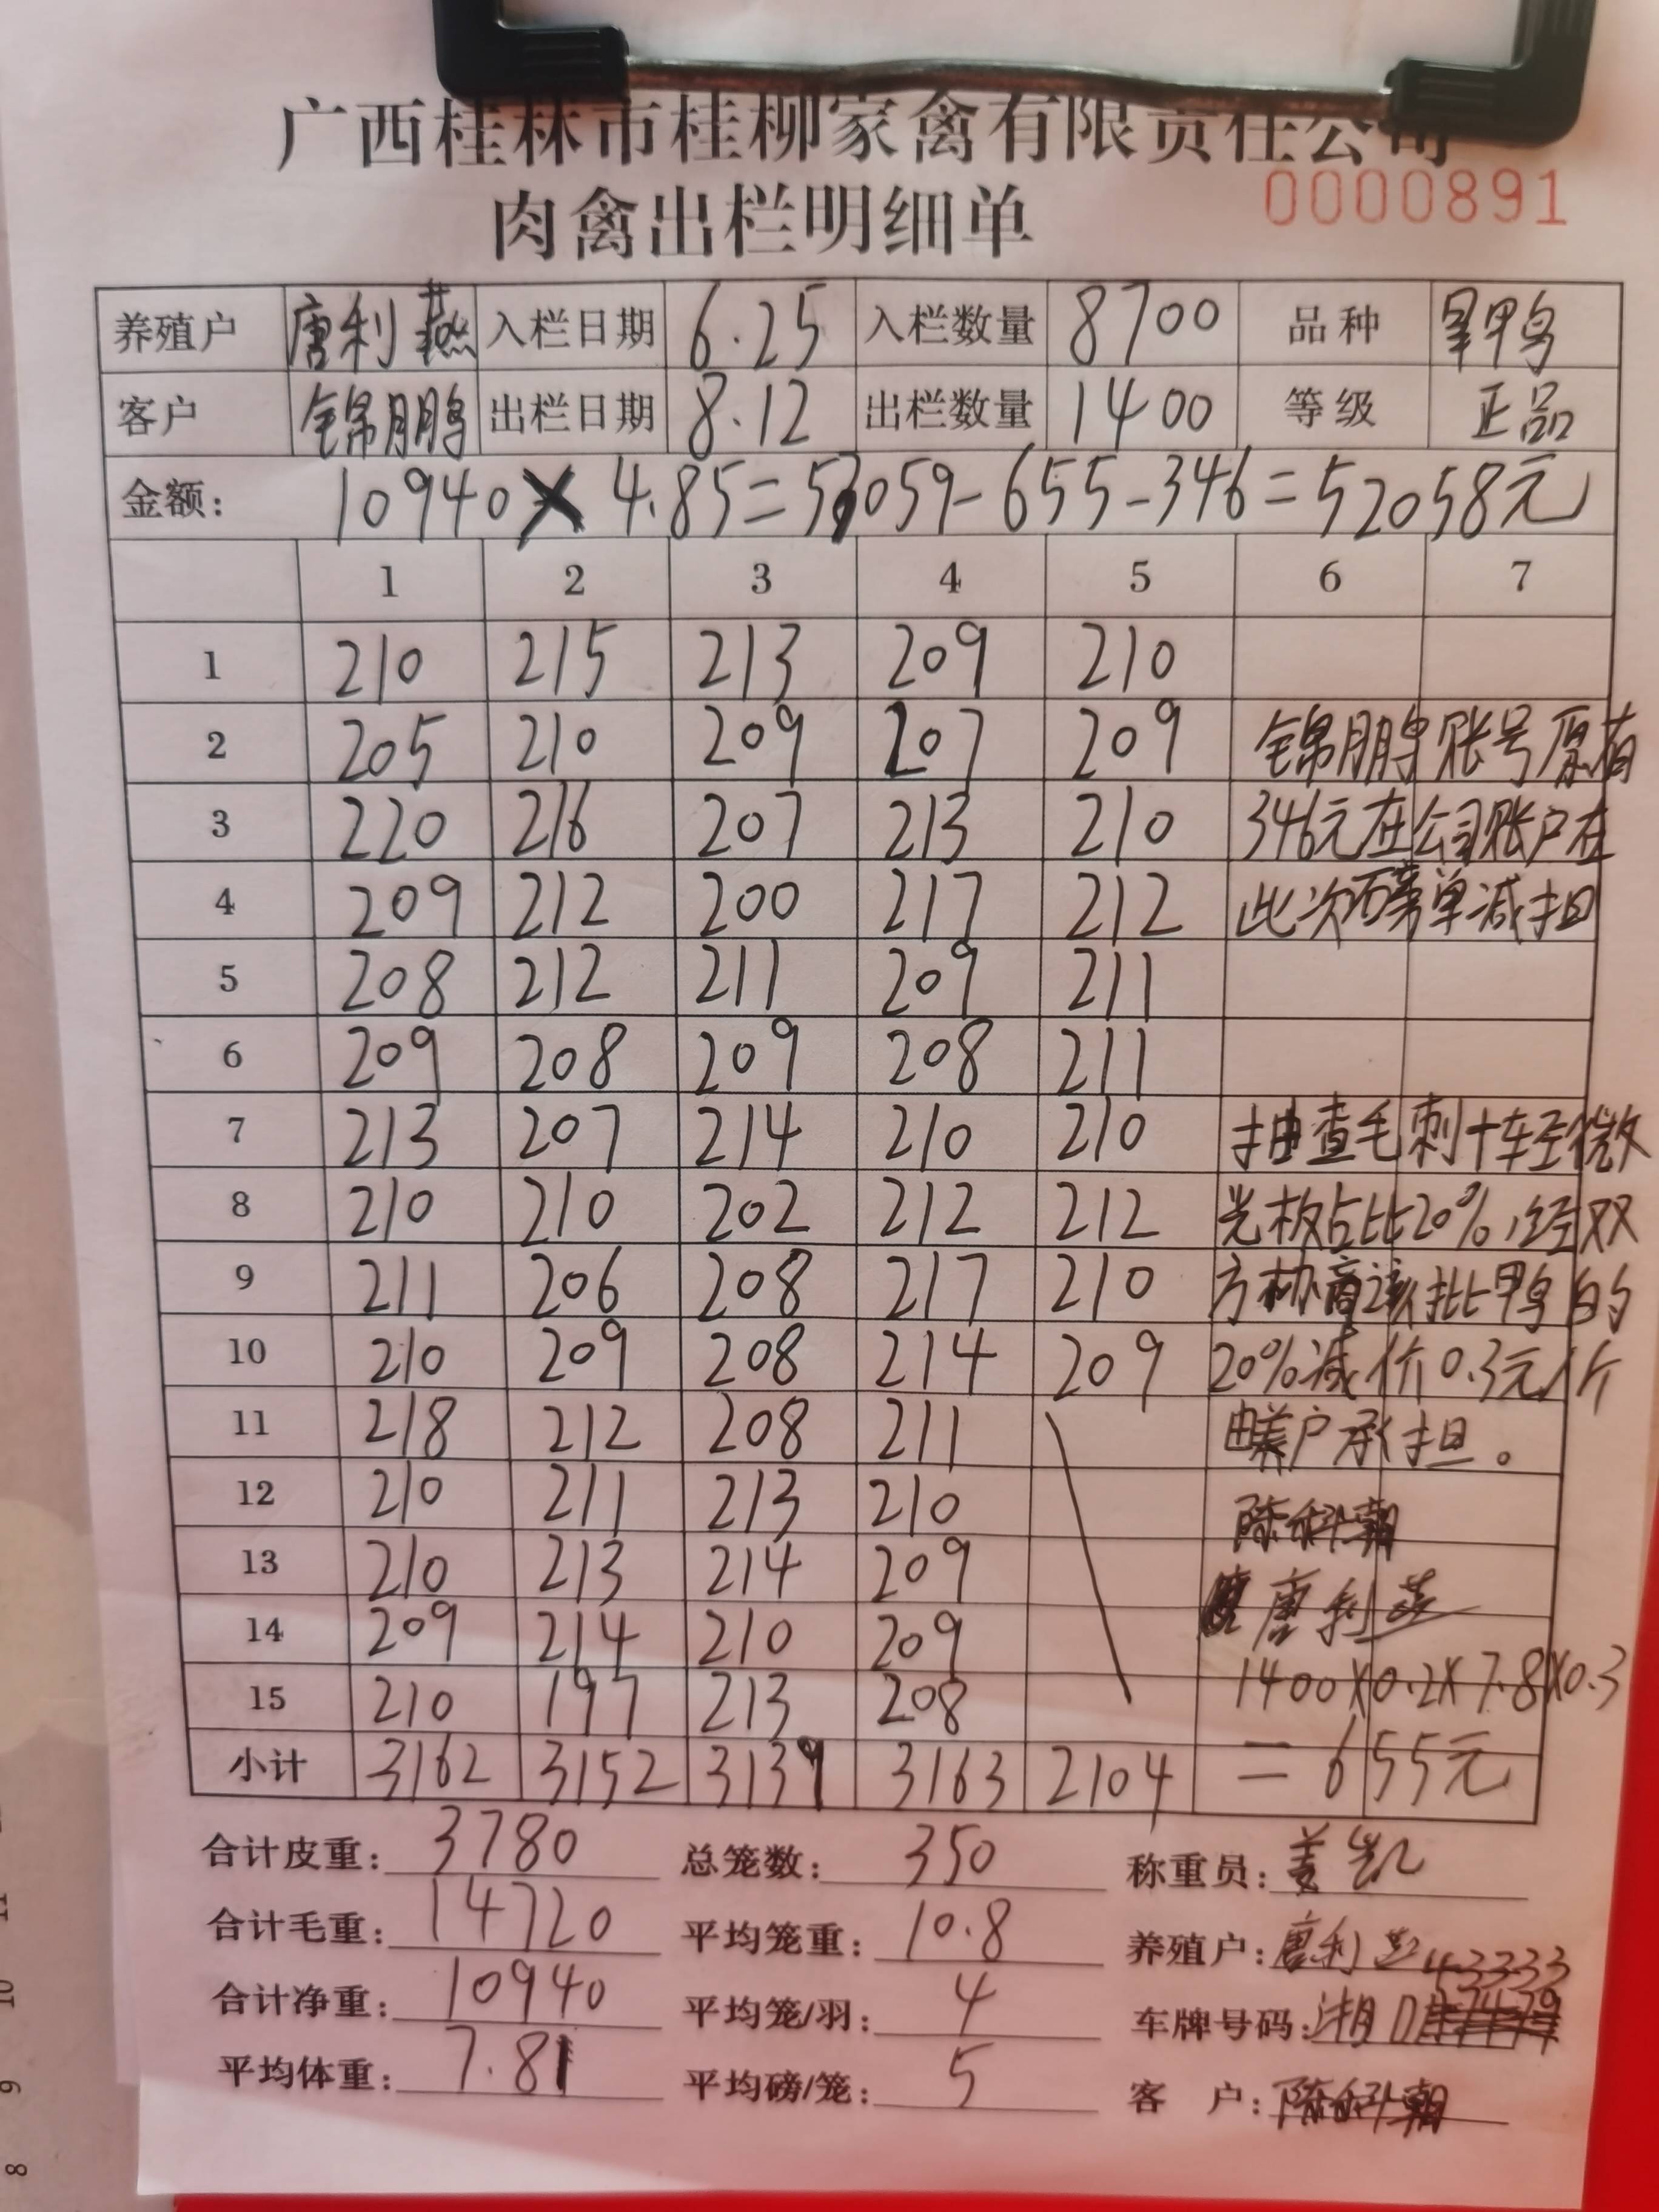 广西桂林市桂柳家禽有限责任公司
肉禽出栏明细单
0000891
养殖户 唐利燕 入栏日期 6.25 入栏数量 8700 品种 旱鸭
客户 锦鹏 出栏日期 8.12 出栏数量 1400 等级 正品
金额: 10940×4.85=53059-655-346=52058元
1 2 3 4 5 6 7
1 210 215 213 209 210
2 205 210 209 207 209 锦鹏账号原有
3 220 216 207 213 210 346元在公司账户在
4 209 212 200 217 212 此次磅单减扣
5 208 212 211 209 211
6 209 208 209 208 211
7 213 207 214 210 210 抽查毛刺+轻微
8 210 210 202 212 212 光板占比20%,经双
9 211 206 208 217 210 方协商该批鸭的
10 210 209 208 214 209 20%减价0.3元/斤
11 218 212 208 211 由养户承担。
12 210 211 213 210 陈科朝
13 210 213 214 209 唐利燕
14 209 214 210 209
15 210 197 213 208 1400×0.2×7.8×0.3
小计 3162 3152 3139 3163 2104 =655元
合计皮重: 3780 总笼数: 350 称重员: 姜凯
合计毛重: 14720 平均笼重: 10.8 养殖户: 唐利燕
合计净重: 10940 平均笼/羽: 4 车牌号码: 湘D43333
平均体重: 7.81 平均磅/笼: 5 客 户: 陈科朝